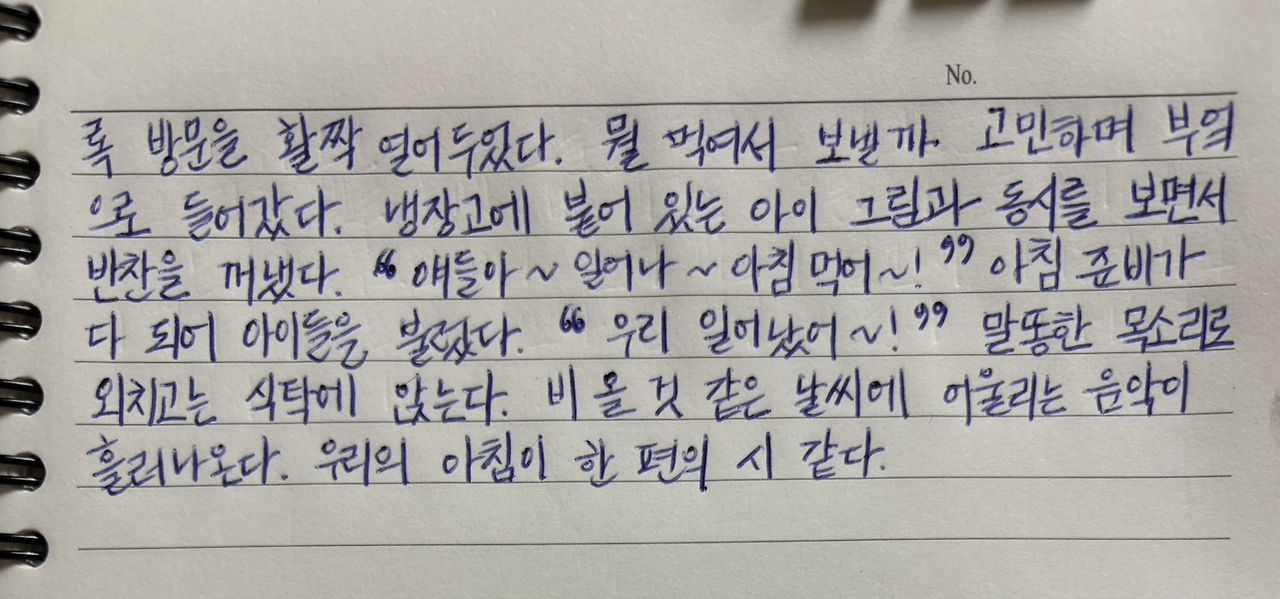 No.
록 방문을 활짝 열어두었다. 뭘 먹여서 보낼까. 고민하며 부엌
으로 들어갔다. 냉장고에 붙어 있는 아이 그림과 동시를 보면서
반찬을 꺼냈다. “얘들아~ 일어나~ 아침 먹어~!” 아침 준비가
다 되어 아이들을 불렀다. “우리 일어났어~!” 말똥한 목소리로
외치고는 식탁에 앉는다. 비 올 것 같은 날씨에 어울리는 음악이
흘러나온다. 우리의 아침이 한 편의 시 같다.